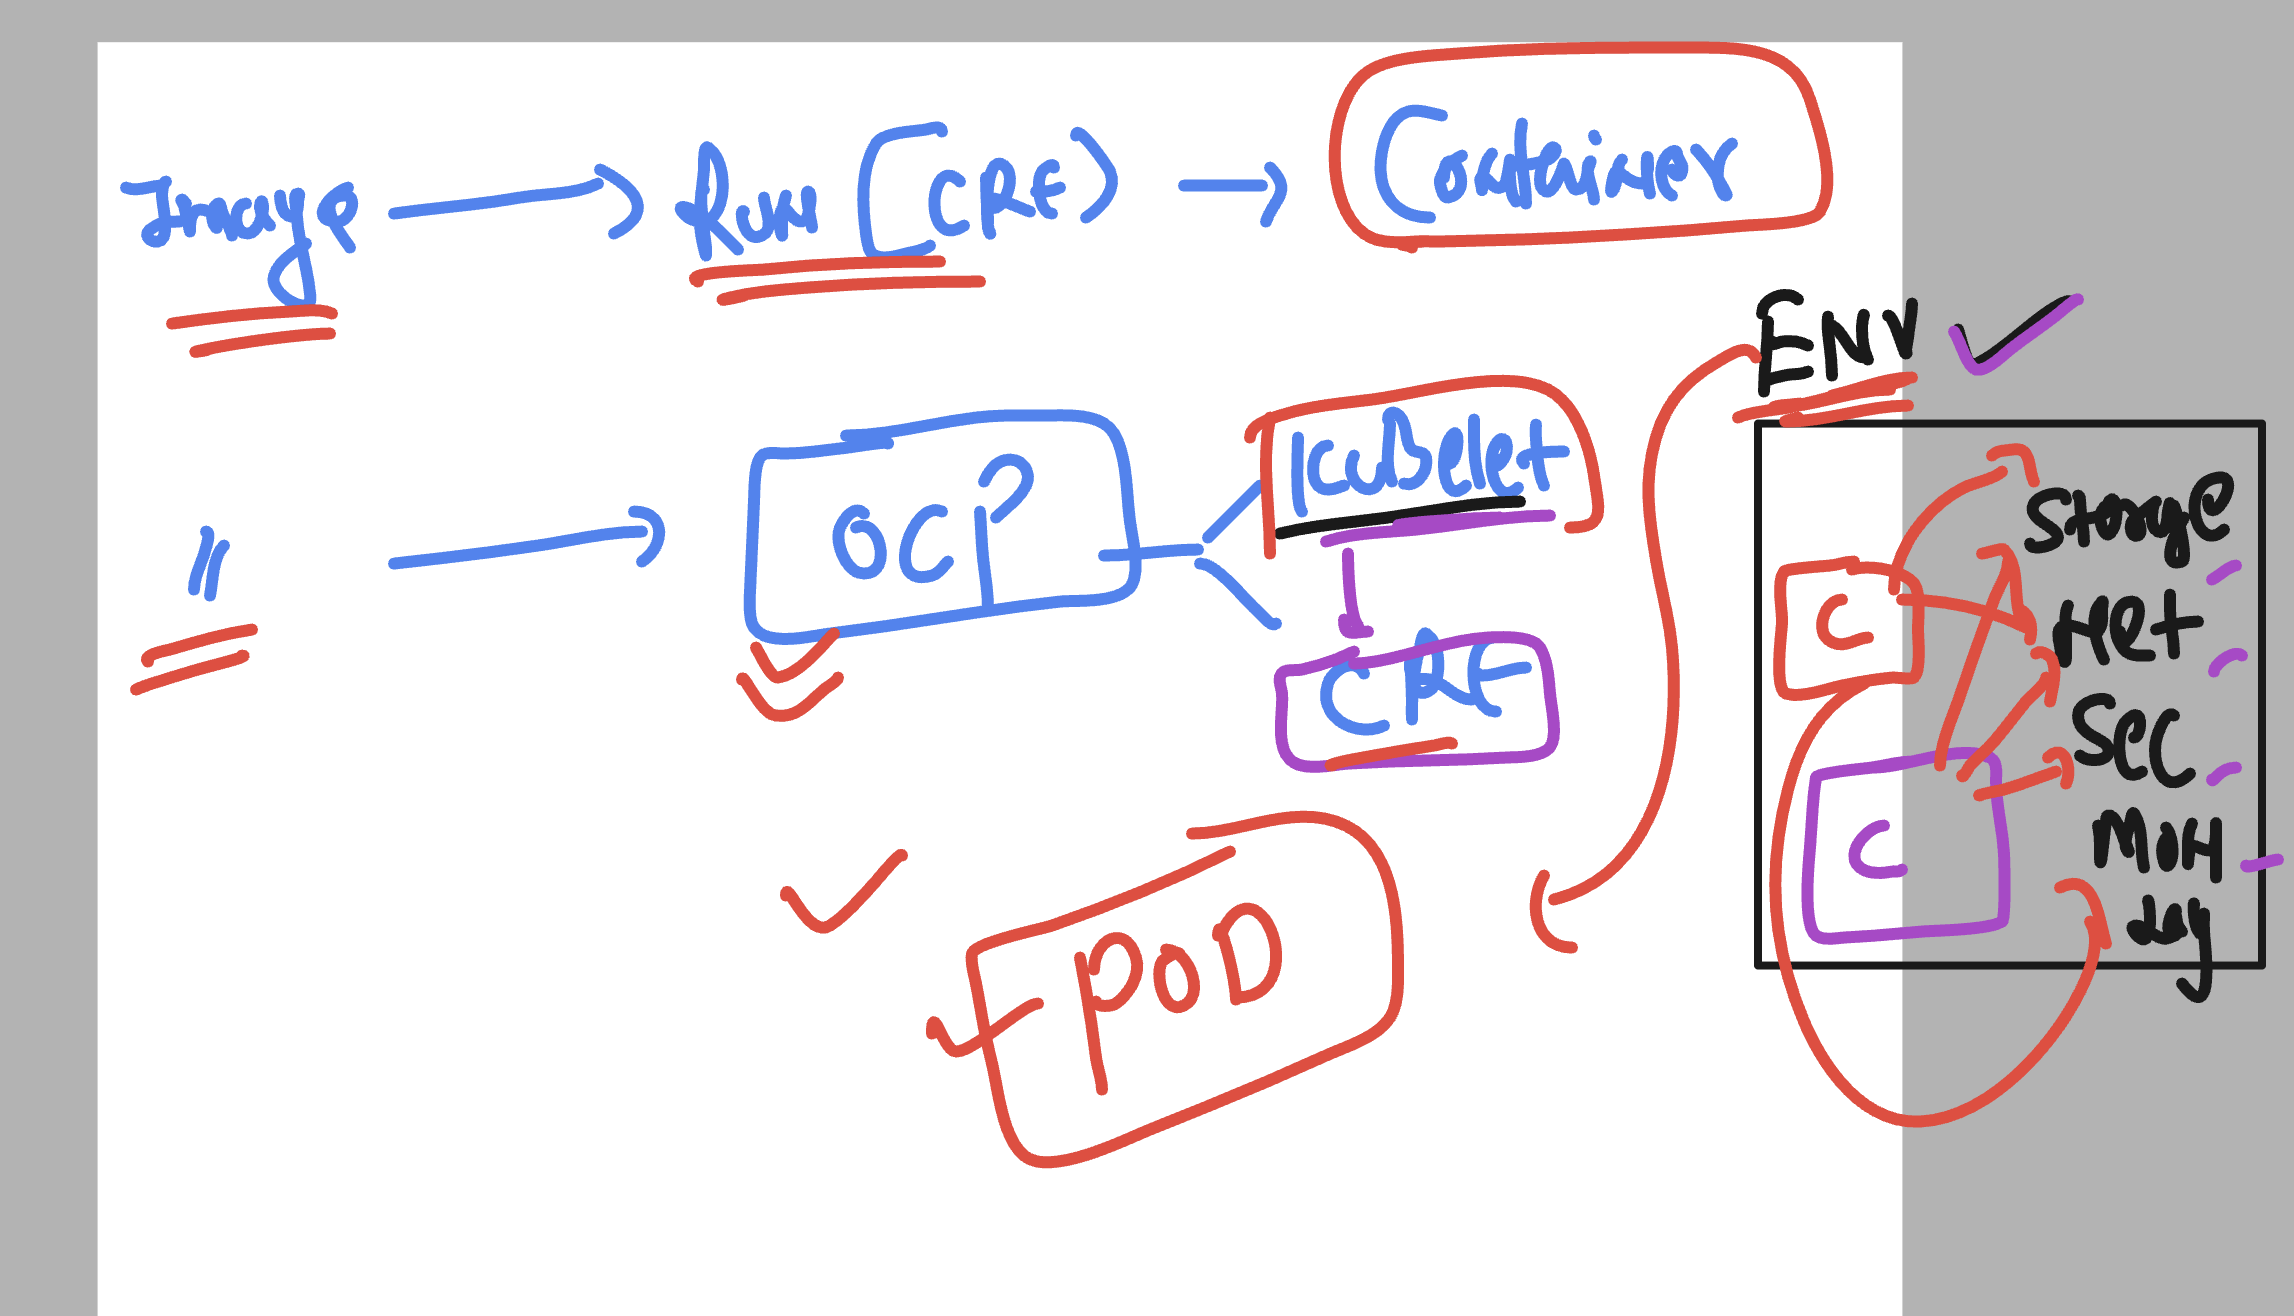 Image → Run (CRE) → Container
ENV ✓
" → OCP
Kubelet
CRE
POD
C
C
Storage
Net
Sec
Mon